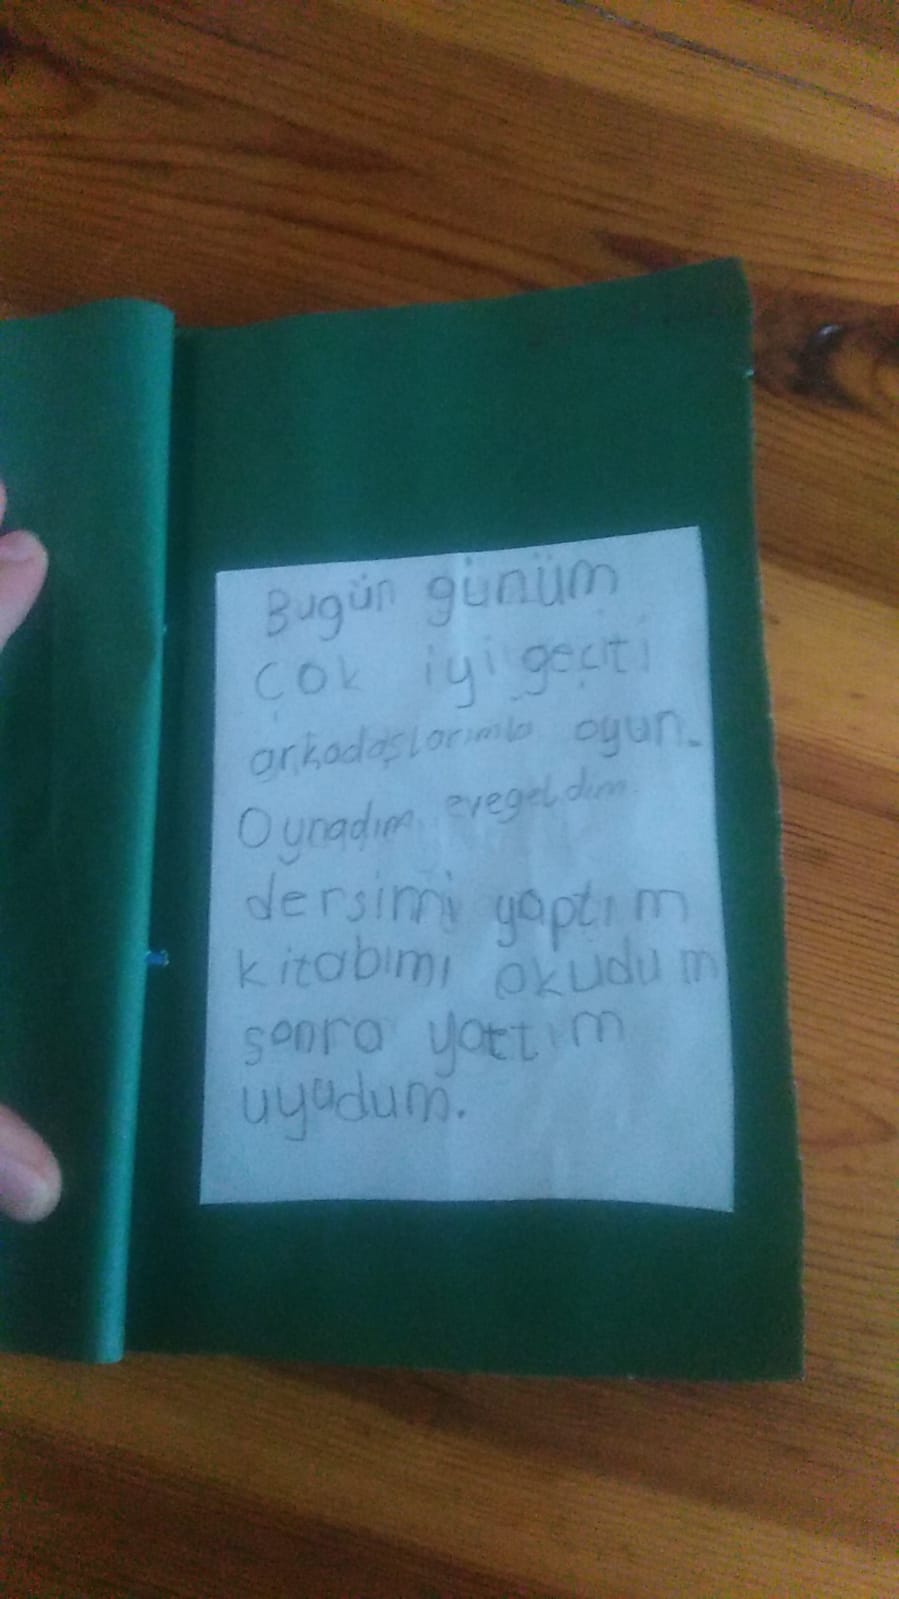 Bugün günüm
çok iyi geçiti
arkadaşlarımla oyun.
Oynadım evegeldim
dersimi yaptım
kitabımı okudum
sonra yattım
uyudum.